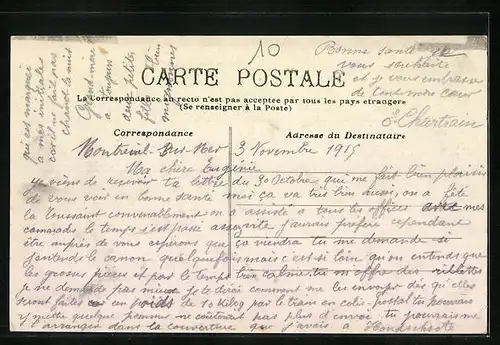 10
Bonne santé
vous souhaite
et je vous embrasse
de tout mon cœur
Chartrain
qui est marqué
a mes initiales
car il ne fait pas
chaud la nuit
Grand mère
a toujours
deux petites
filles bien
mignonnes
CARTE POSTALE
La Correspondance au recto n'est pas acceptée par tous les pays étrangers
(Se renseigner à la Poste)
Correspondance
Adresse du Destinataire
Montreuil-sur-Mer 3 Novembre 1915
Ma chère Eugénie
Je viens de recevoir ta lettre du 30 Octobre qui me fait bien plaisir
de vous voir en bonne santé moi ça va très bien aussi, on a fêté
la toussaint convenablement on a assisté a tous les offices avec mes
camarades le temps s'est passé assez vite j'aurais préféré cependant
être auprès de vous espérons que ça viendra tu me demande si
j'entends le canon quelquefois mais c'est si loin qu'on entends que
les grosses pièces et par le temps très calme, tu m'offre des rillettes
je ne demande pas mieux je te dirai comment me les envoyer dès qu'elles
seront faites un poids de 10 kilog par le train en colis-postal tu pourrais
y mettre quelque pommes ne coûterait pas plus d'envoi, tu pourrais me
arranger dans la couverture que j'avais a Hondschoote